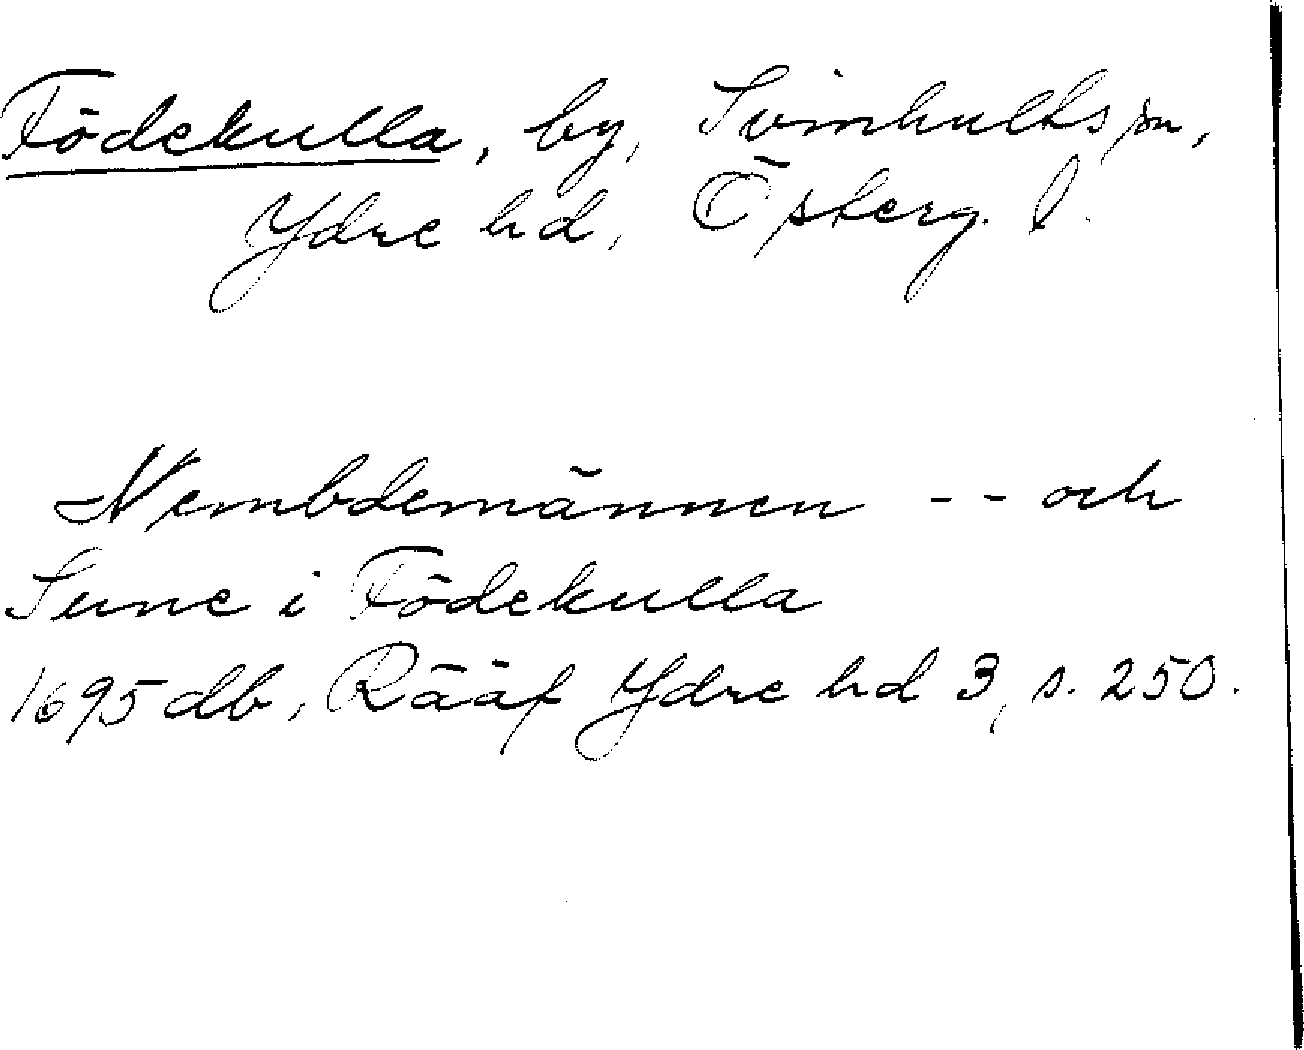 Födekulla, by, Svinhults sn,
Ydre hd, Österg. l.
Nembdemännen -- och
Sune i Födekulla
1695 db, Rääf Ydre hd 3, s. 250.